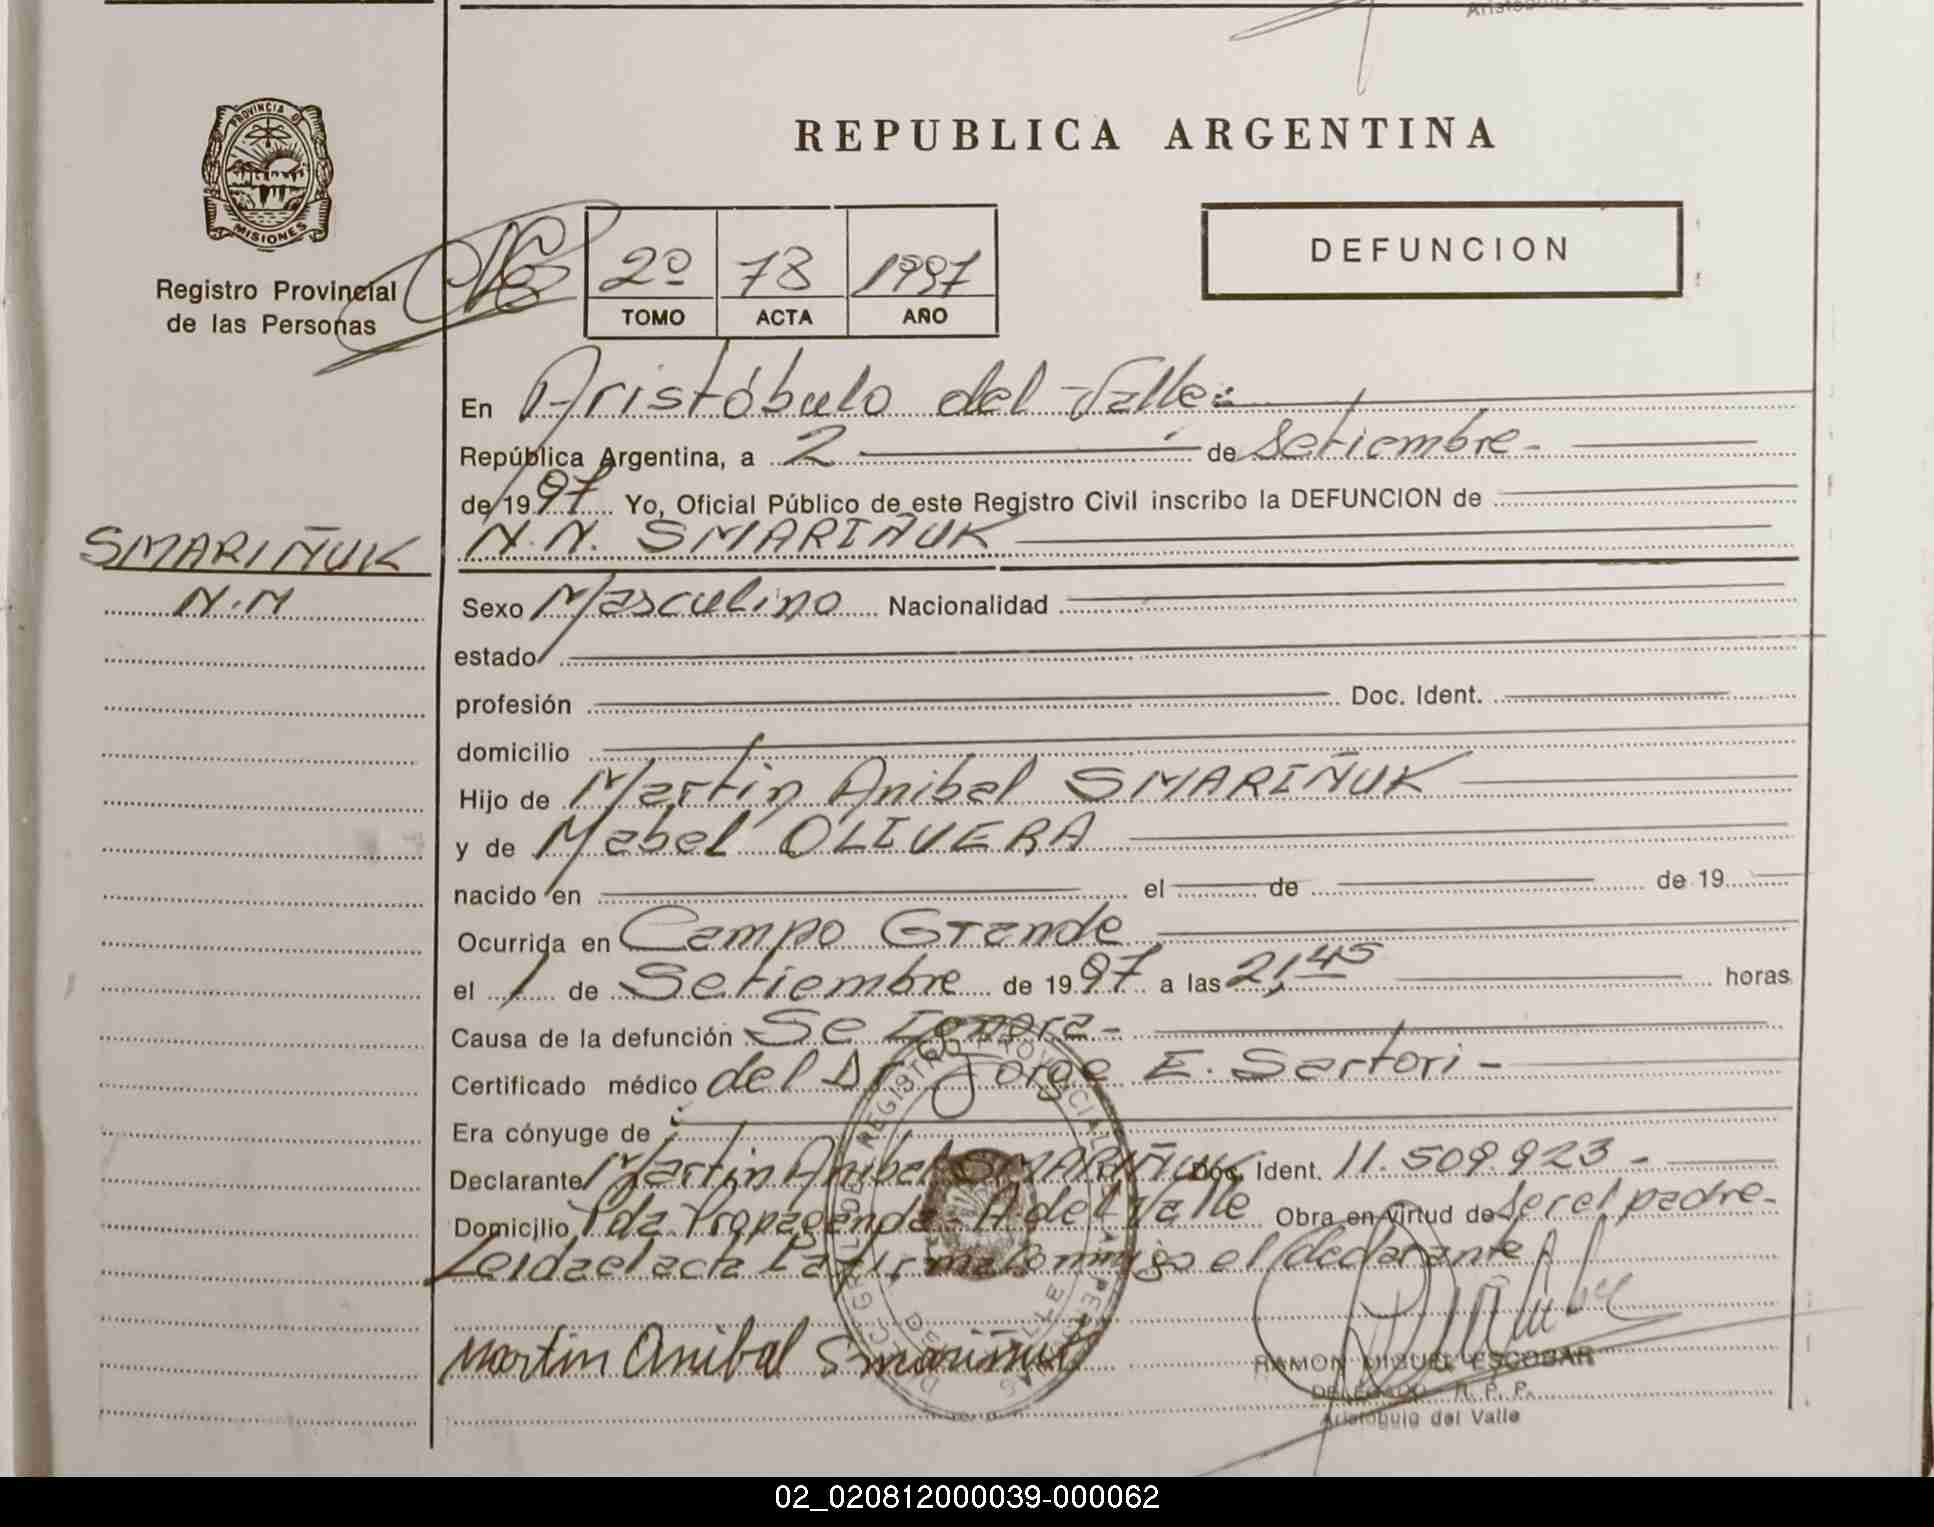 PROVINCIA DE
MISIONES
Registro Provincial
de las Personas
REPUBLICA ARGENTINA
2º 78 1997
TOMO ACTA AÑO
DEFUNCION
En Aristóbulo del Valle:
República Argentina, a 2 de Setiembre -
de 1997 Yo, Oficial Público de este Registro Civil inscribo la DEFUNCION de
SMARIÑUK
N.N
N.N. SMARIÑUK
Sexo Masculino Nacionalidad
estado
profesión Doc. Ident.
domicilio
Hijo de Martin Anibal SMARIÑUK
y de Mabel OLIVERA
nacido en el de de 19
Ocurrida en Campo Grande
el 1 de Setiembre de 1997 a las 21,45 horas
Causa de la defunción Se Ignora -
Certificado médico del Dr Jorge E. Sartori -
Era cónyuge de
Declarante Martin Anibal SMARIÑUK Doc. Ident. 11.509.923 -
Domicilio Pda Propaganda - A del Valle Obra en virtud de Ser el padre -
Leida el acta La firma Conmigo el declarante
Martin Anibal Smariñuk
RAMON MIGUEL ESCOBAR
DELEGADO R. P. P.
Aristobulo del Valle
02_020812000039-000062